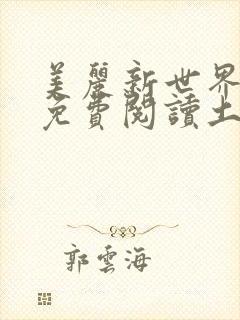 美麗新世界
免費閱讀土
郭雲海